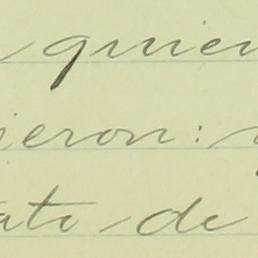 quien
ieron:
ato de